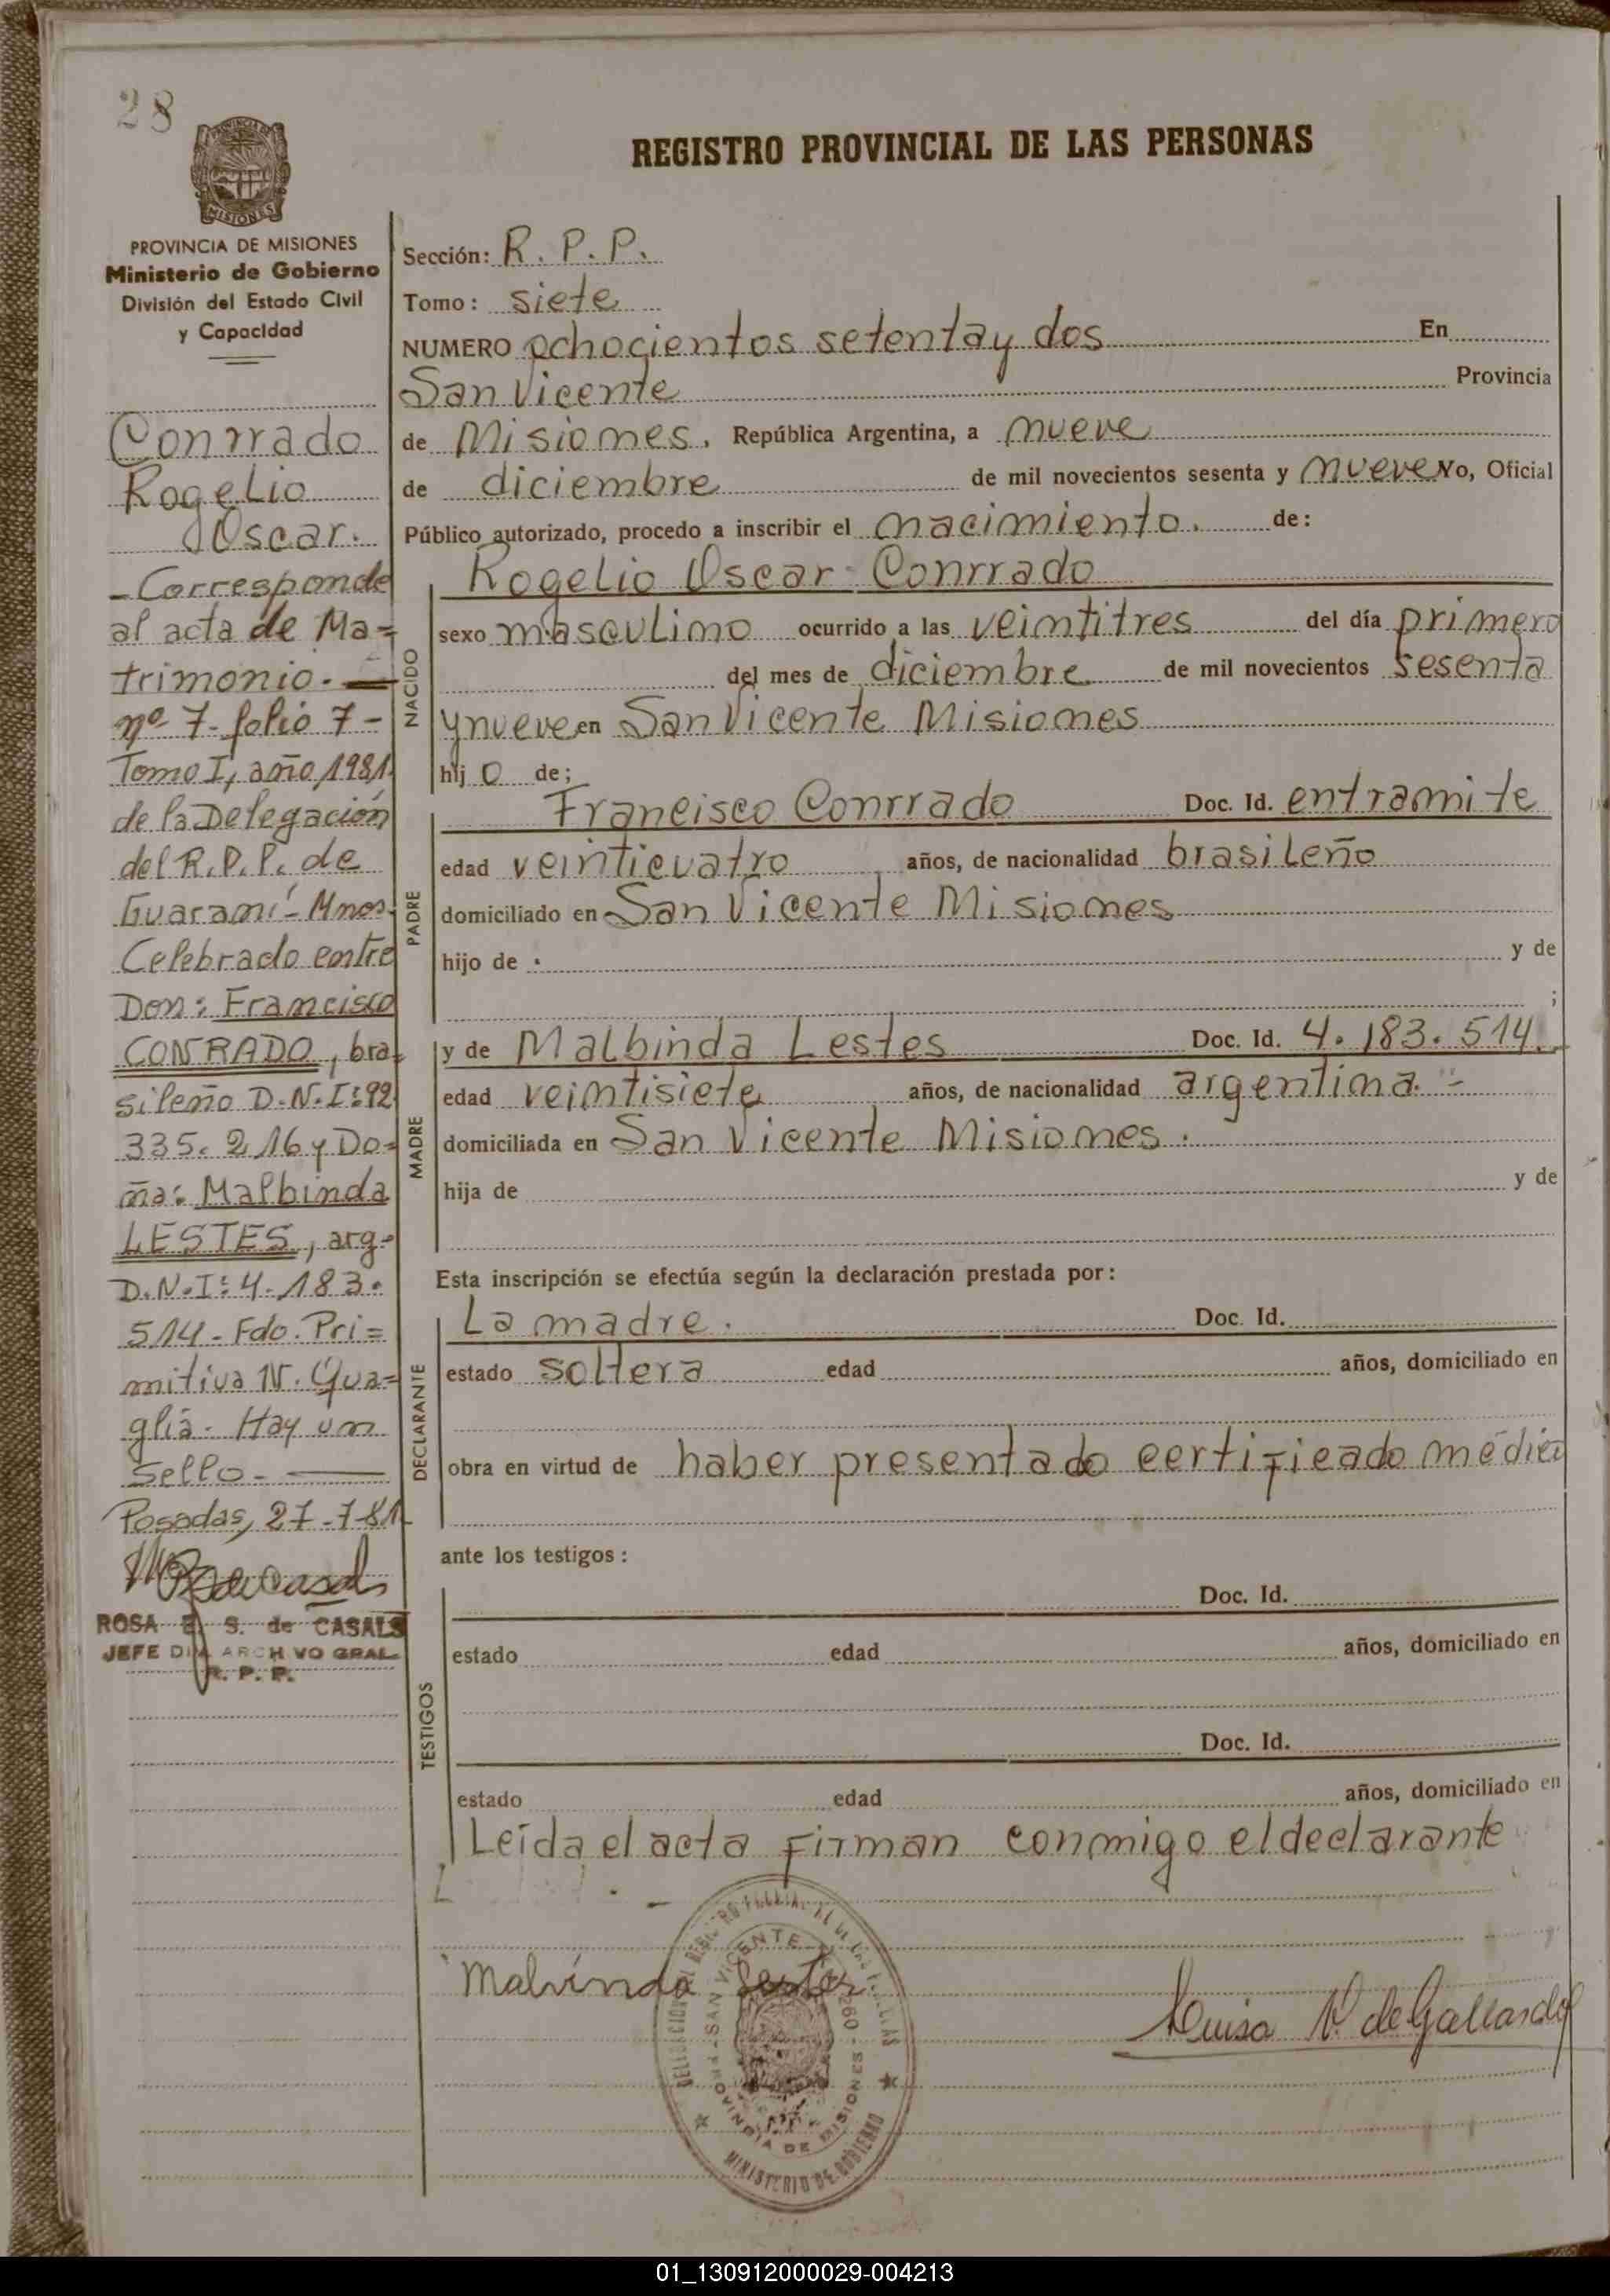 28
REGISTRO PROVINCIAL DE LAS PERSONAS
MISIONES
PROVINCIA DE MISIONES
Ministerio de Gobierno
División del Estado Civil
y Capacidad
Conrrado
Rogelio
Oscar.
- Corresponde
al acta de Ma=
trimonio. —
nº 7 - folio 7 -
Tomo I, año 1981
de la Delegación
del R.P.P. de
Guaraní - Mnes.
Celebrado entre
Don: Francisco
CONRADO, bra=
sileño D.N.I: 92.
335.216 y Do=
ña: Malbinda
LESTES, arg-
D.N.I: 4.183.
514 - Fdo. Pri=
mitiva N. Qua=
glia - Hay un
sello - —
Posadas, 27-7-81
ROSA E. S. de CASALS
JEFE ARCHIVO GRAL
R. P. P.
Sección: R. P. P.
Tomo: siete
NUMERO ochocientos setenta y dos En
San Vicente Provincia
de Misiones. República Argentina, a nueve
de diciembre de mil novecientos sesenta y nueve Yo, Oficial
Público autorizado, procedo a inscribir el nacimiento. de:
NACIDO
Rogelio Oscar Conrrado
sexo masculino ocurrido a las veintitres del día primero
del mes de diciembre de mil novecientos sesenta
y nueve en San Vicente Misiones
hij o de;
PADRE
Francisco Conrrado Doc. Id. en tramite
edad veinticuatro años, de nacionalidad brasileño
domiciliado en San Vicente Misiones
hijo de . y de
;
MADRE
y de Malbinda Lestes Doc. Id. 4. 183. 514.
edad veintisiete años, de nacionalidad argentina. -
domiciliada en San Vicente Misiones.
hija de y de
Esta inscripción se efectúa según la declaración prestada por:
DECLARANTE
La madre. Doc. Id.
estado soltera edad años, domiciliado en
obra en virtud de haber presentado certificado médico
ante los testigos:
TESTIGOS
Doc. Id.
estado edad años, domiciliado en
Doc. Id.
estado edad años, domiciliado en
Leída el acta firman conmigo el declarante
Malvinda Lestes
Luisa V. de Gallardo
SAN VICENTE
PROVINCIA DE MISIONES
MINISTERIO DE GOBIERNO
01_130912000029-004213